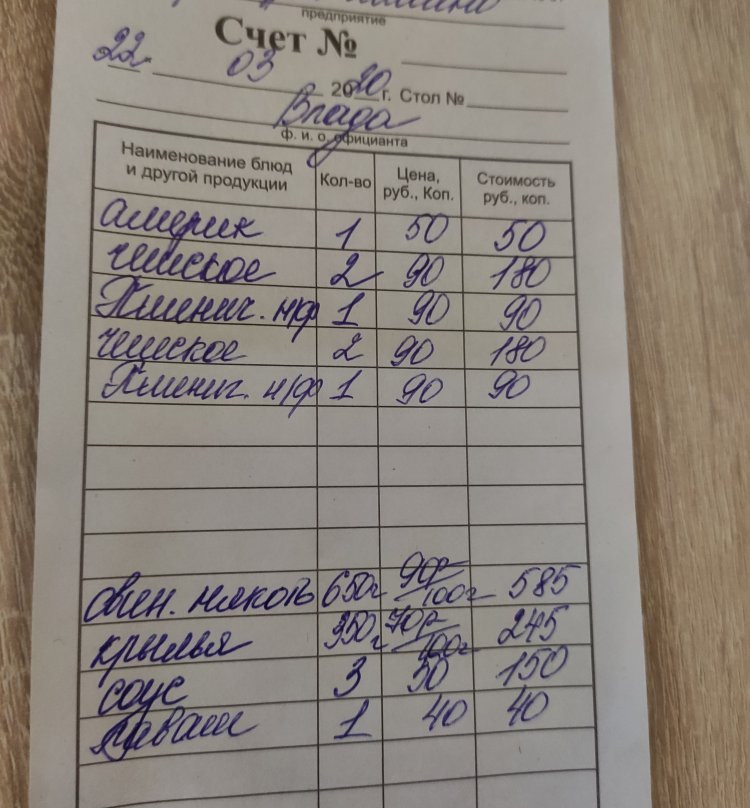 предприятие
Счет №
22. 03 2020 г. Стол №
Влада
ф. и. о. официанта
Наименование блюд и другой продукции Кол-во Цена, руб., Коп. Стоимость руб., коп.
америк 1 50 50
чешское 2 90 180
Пшенич. н/ф 1 90 90
чешское 2 90 180
Пшенич. н/ф 1 90 90
свин. мякоть 650г 90р/100г 585
крылья 350г 70р/100г 245
соус 3 50 150
лаваш 1 40 40